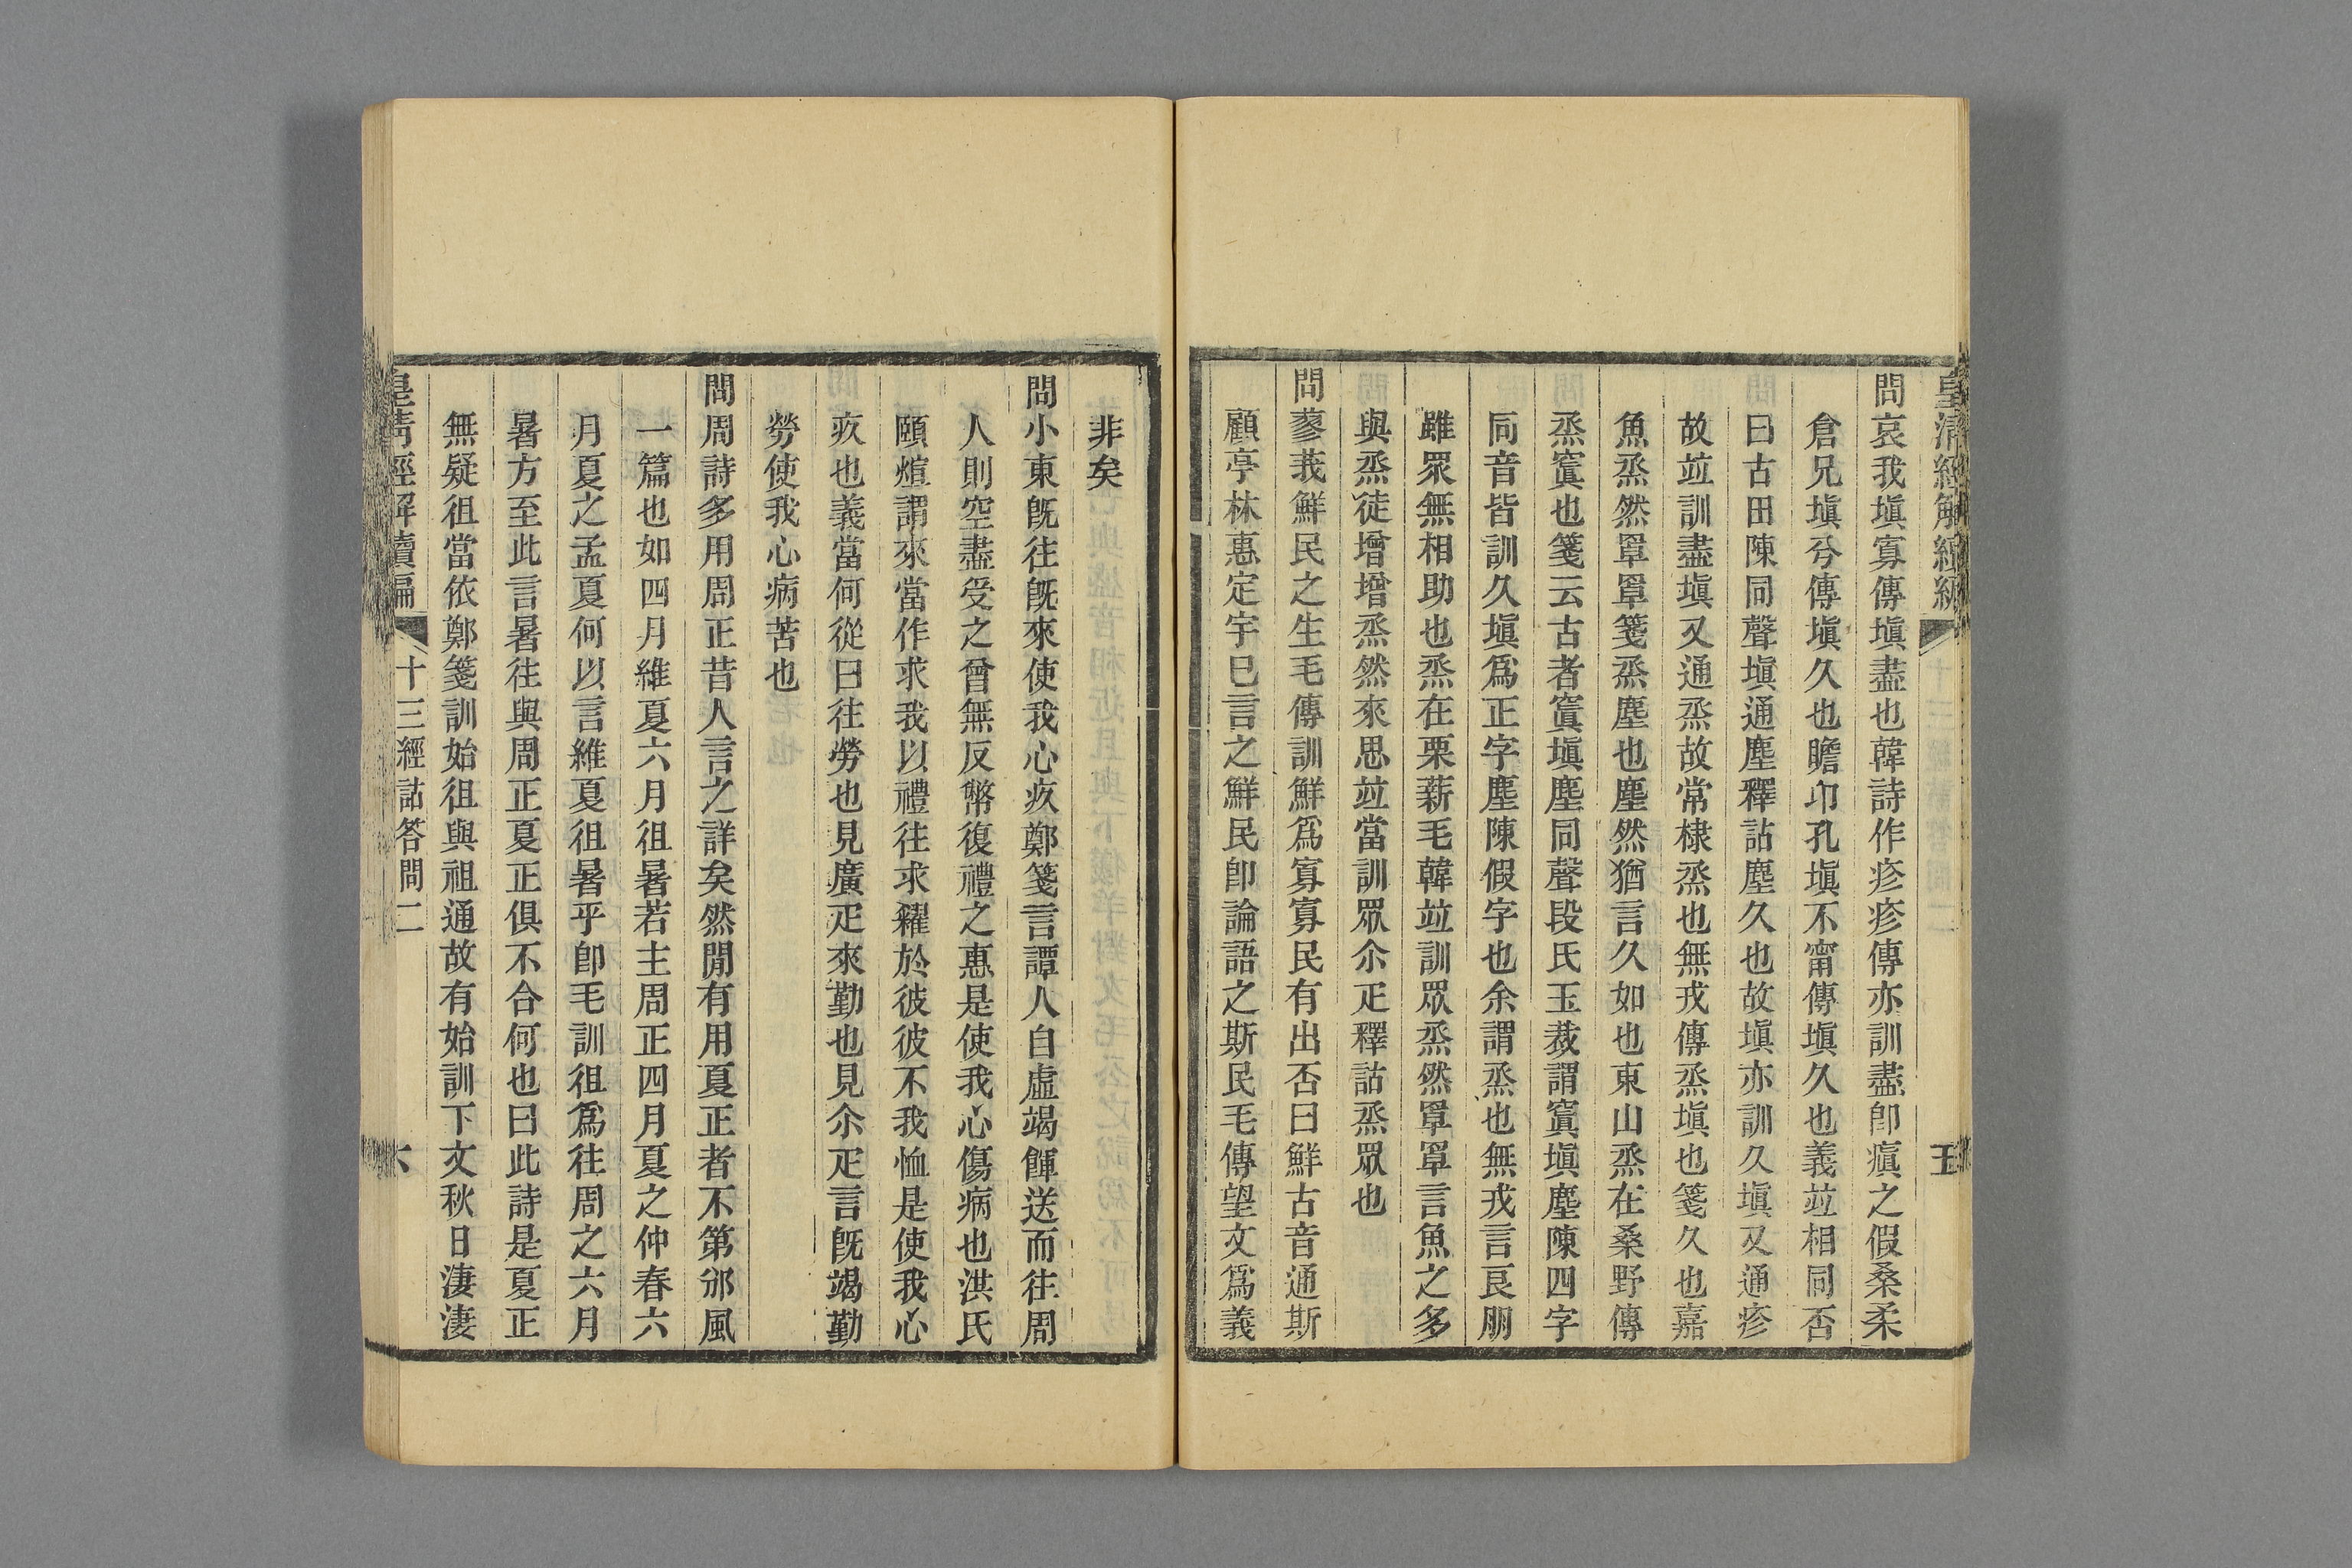 皇清經解續編
五
問哀我塡寡傳塡盡也韓詩作疹疹傳亦訓盡卽瘨之假桑柔
倉兄塡兮傳塡久也瞻卬孔塡不甯傳塡久也義竝相同否
曰古田陳同聲塡通塵釋詁塵久也故塡亦訓久塡又通疹
故竝訓盡塡又通烝故常棣烝也無戎傳烝塡也箋久也嘉
魚烝然罩罩箋烝塵也塵然猶言久如也東山烝在桑野傳
烝寘也箋云古者寘塡塵同聲段氏玉裁謂寘塡塵陳四字
同音皆訓久塡爲正字塵陳假字也余謂烝也無戎言良朋
雖眾無相助也烝在栗薪毛韓竝訓眾烝然罩罩言魚之多
與烝徒增增烝然來思竝當訓眾尒疋釋詁烝眾也
問蓼莪鮮民之生毛傳訓鮮爲寡寡民有出否曰鮮古音通斯
顧亭林惠定宇巳言之鮮民卽論語之斯民毛傳望文爲義
非矣
問小東旣往旣來使我心疚鄭箋言譚人自虛竭餫送而往周
人則空盡受之曾無反幣復禮之惠是使我心傷病也洪氏
頤煊謂來當作求我以禮往求糴於彼彼不我恤是使我心
疚也義當何從曰往勞也見廣疋來勤也見尒疋言旣竭勤
勞使我心病苦也
問周詩多用周正昔人言之詳矣然閒有用夏正者不第邠風
一篇也如四月維夏六月徂暑若主周正四月夏之仲春六
月夏之孟夏何以言維夏徂暑乎卽毛訓徂爲往周之六月
暑方至此言暑往與周正夏正俱不合何也曰此詩是夏正
無疑徂當依鄭箋訓始徂與祖通故有始訓下文秋日淒淒
皇淸經解續編
十三經詁答問二
六